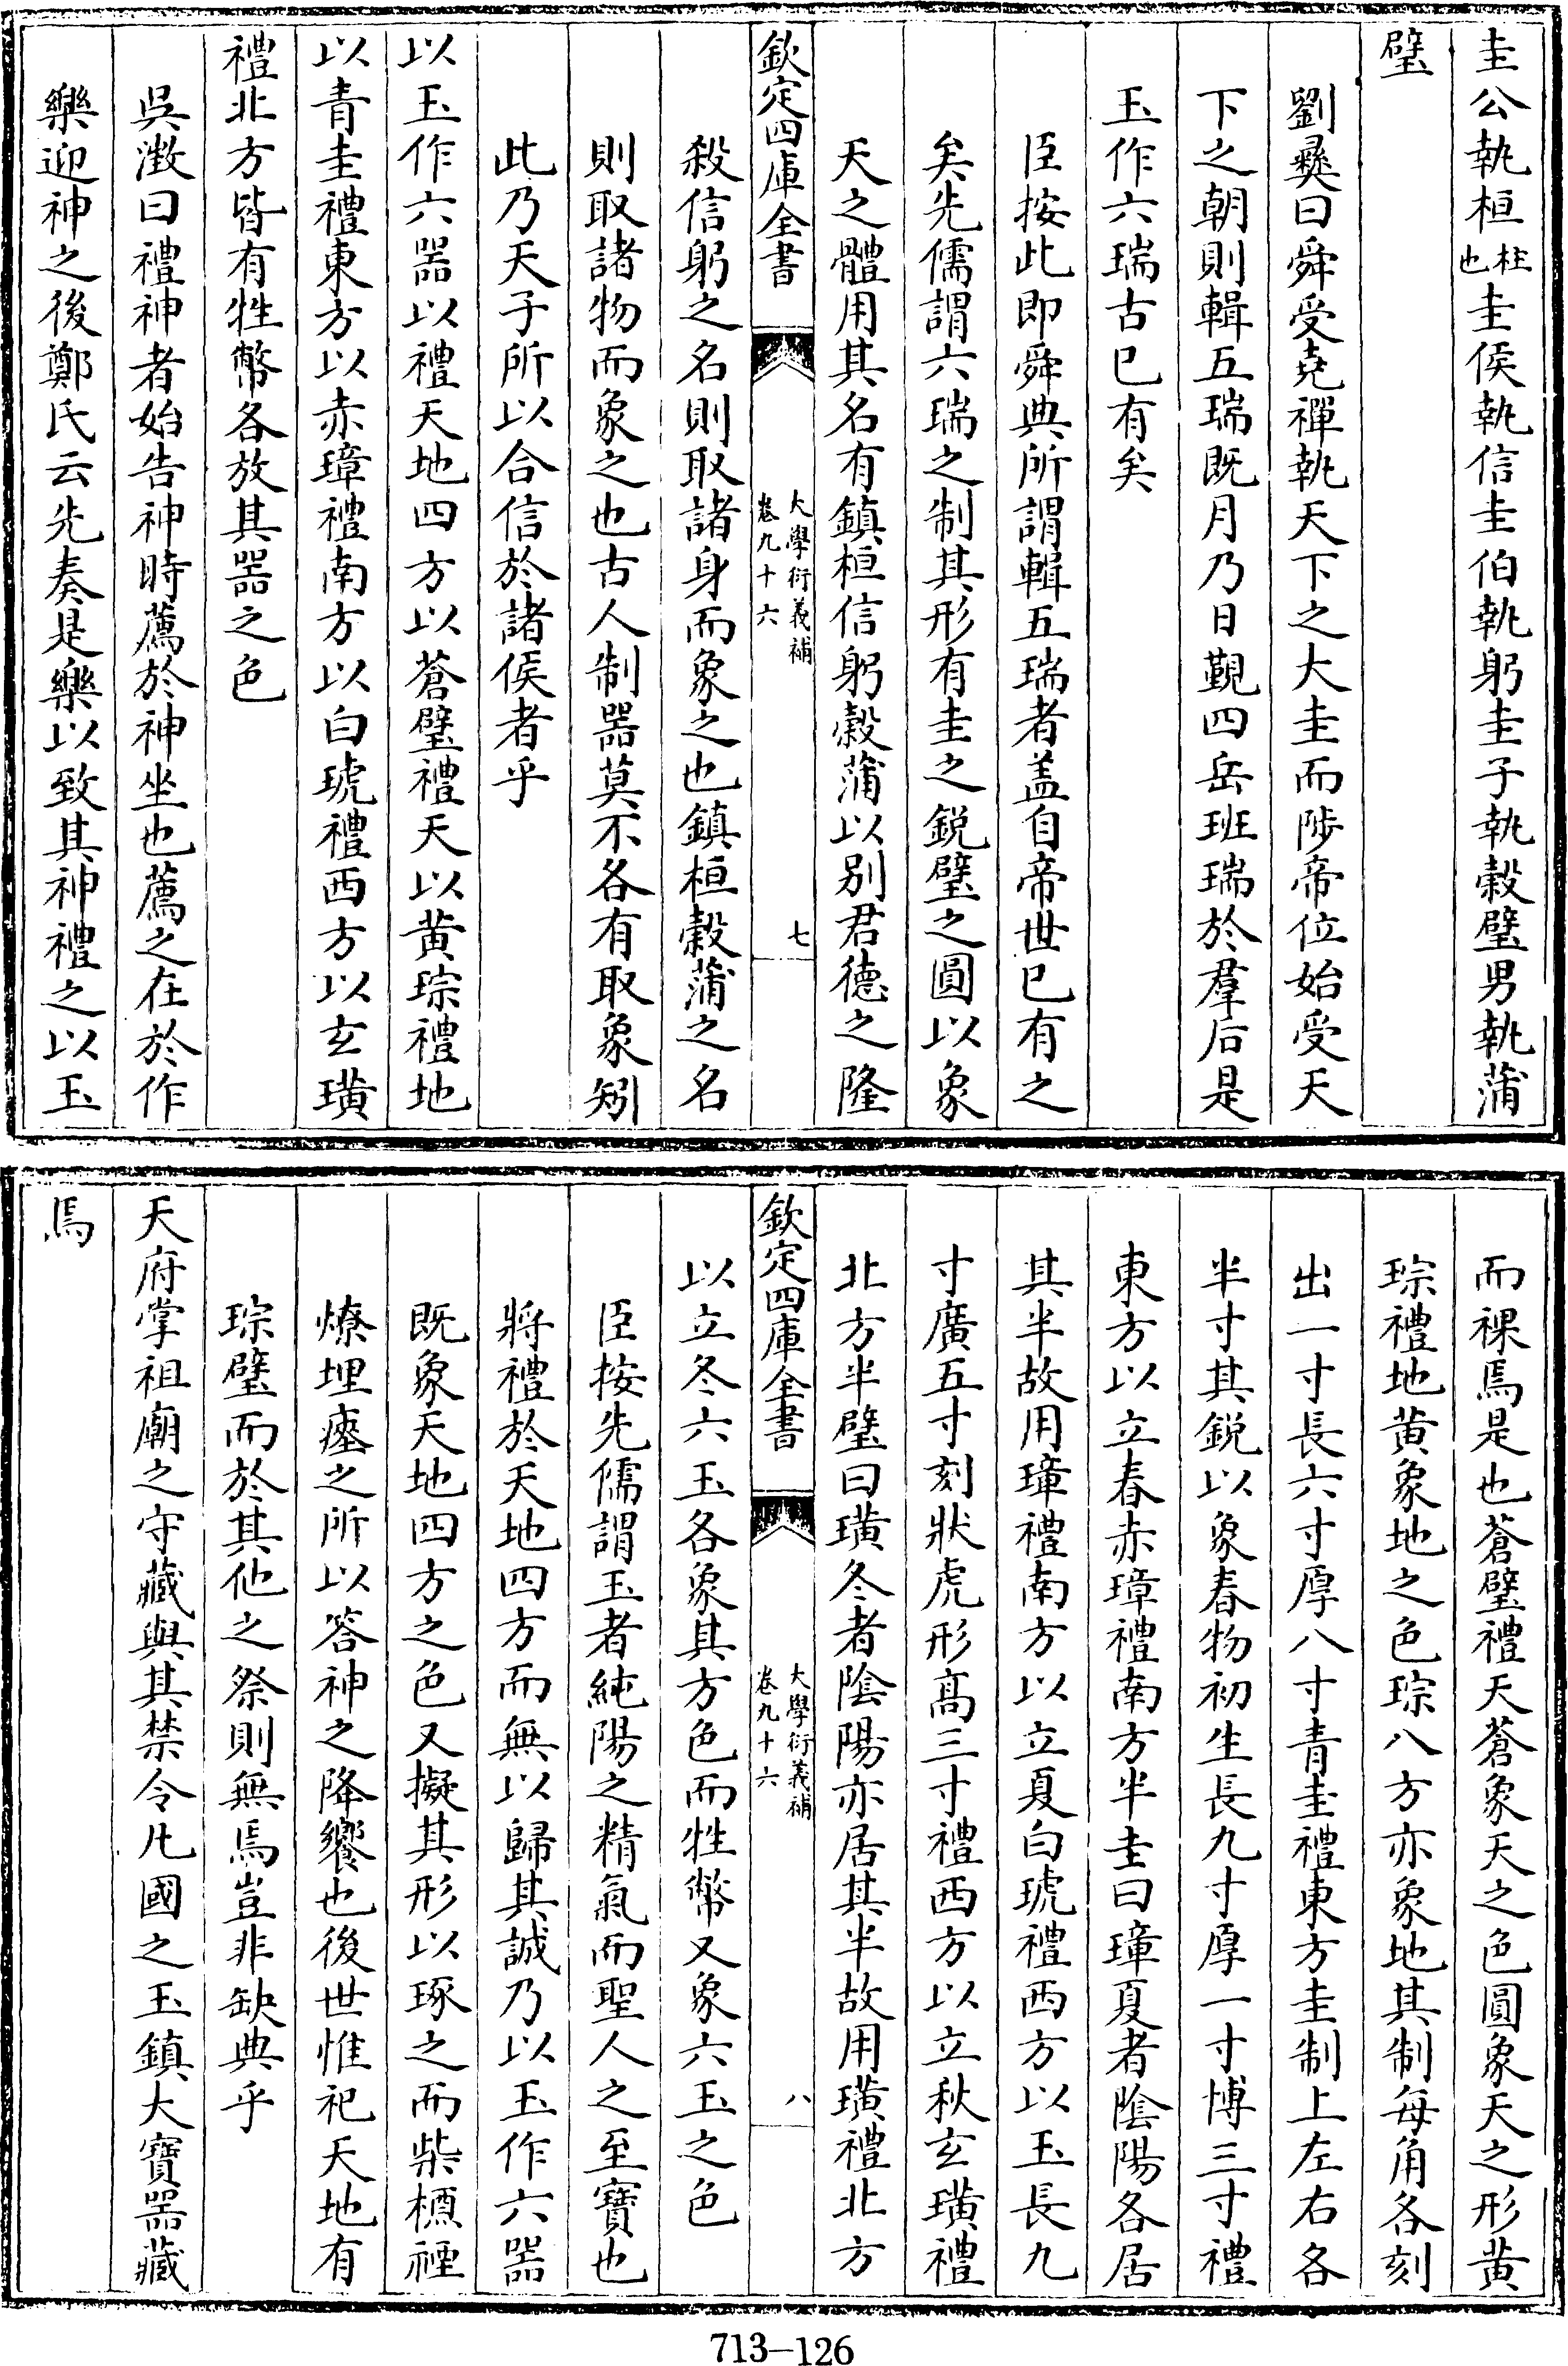 圭公執桓柱也圭侯執信圭伯執躬圭子執榖璧男執蒲
璧
劉彞曰舜受堯禪執天下之大圭而陟帝位始受天
下之朝則輯五瑞既月乃日覲四岳班瑞於羣后是
玉作六瑞古已有矣
臣按此即舜典所謂輯五瑞者盖自帝世已有之
矣先儒謂六瑞之制其形有圭之鋭璧之圓以象
天之體用其名有鎮桓信躬榖蒲以别君德之隆
欽定四庫全書
大學衍義補
卷九十六
七
殺信躬之名則取諸身而象之也鎮桓榖蒲之名
則取諸物而象之也古人制器莫不各有取象矧
此乃天子所以合信於諸侯者乎
以玉作六器以禮天地四方以蒼璧禮天以黄琮禮地
以青圭禮東方以赤璋禮南方以白琥禮西方以玄璜
禮北方皆有牲幣各放其器之色
吳澂曰禮神者始告神時薦於神坐也薦之在於作
樂迎神之後鄭氏云先奏是樂以致其神禮之以玉
而祼焉是也蒼璧禮天蒼象天之色圓象天之形黄
琮禮地黄象地之色琮八方亦象地其制每角各刻
出一寸長六寸厚八寸青圭禮東方圭制上左右各
半寸其鋭以象春物初生長九寸厚一寸博三寸禮
東方以立春赤璋禮南方半圭曰璋夏者隂陽各居
其半故用璋禮南方以立夏白琥禮西方以玉長九
寸廣五寸刻狀虎形髙三寸禮西方以立秋玄璜禮
北方半璧曰璜冬者隂陽亦居其半故用璜禮北方
欽定四庫全書
大學衍義補
卷九十六
八
以立冬六玉各象其方色而牲幣又象六玉之色
臣按先儒謂玉者純陽之精氣而聖人之至寶也
將禮於天地四方而無以歸其誠乃以玉作六器
既象天地四方之色又擬其形以琢之而柴槱禋
燎埋瘞之所以答神之降饗也後世惟祀天地有
琮璧而於其他之祭則無焉豈非缺典乎
天府掌祖廟之守藏與其禁令凡國之玉鎮大寶器藏
焉
713-126